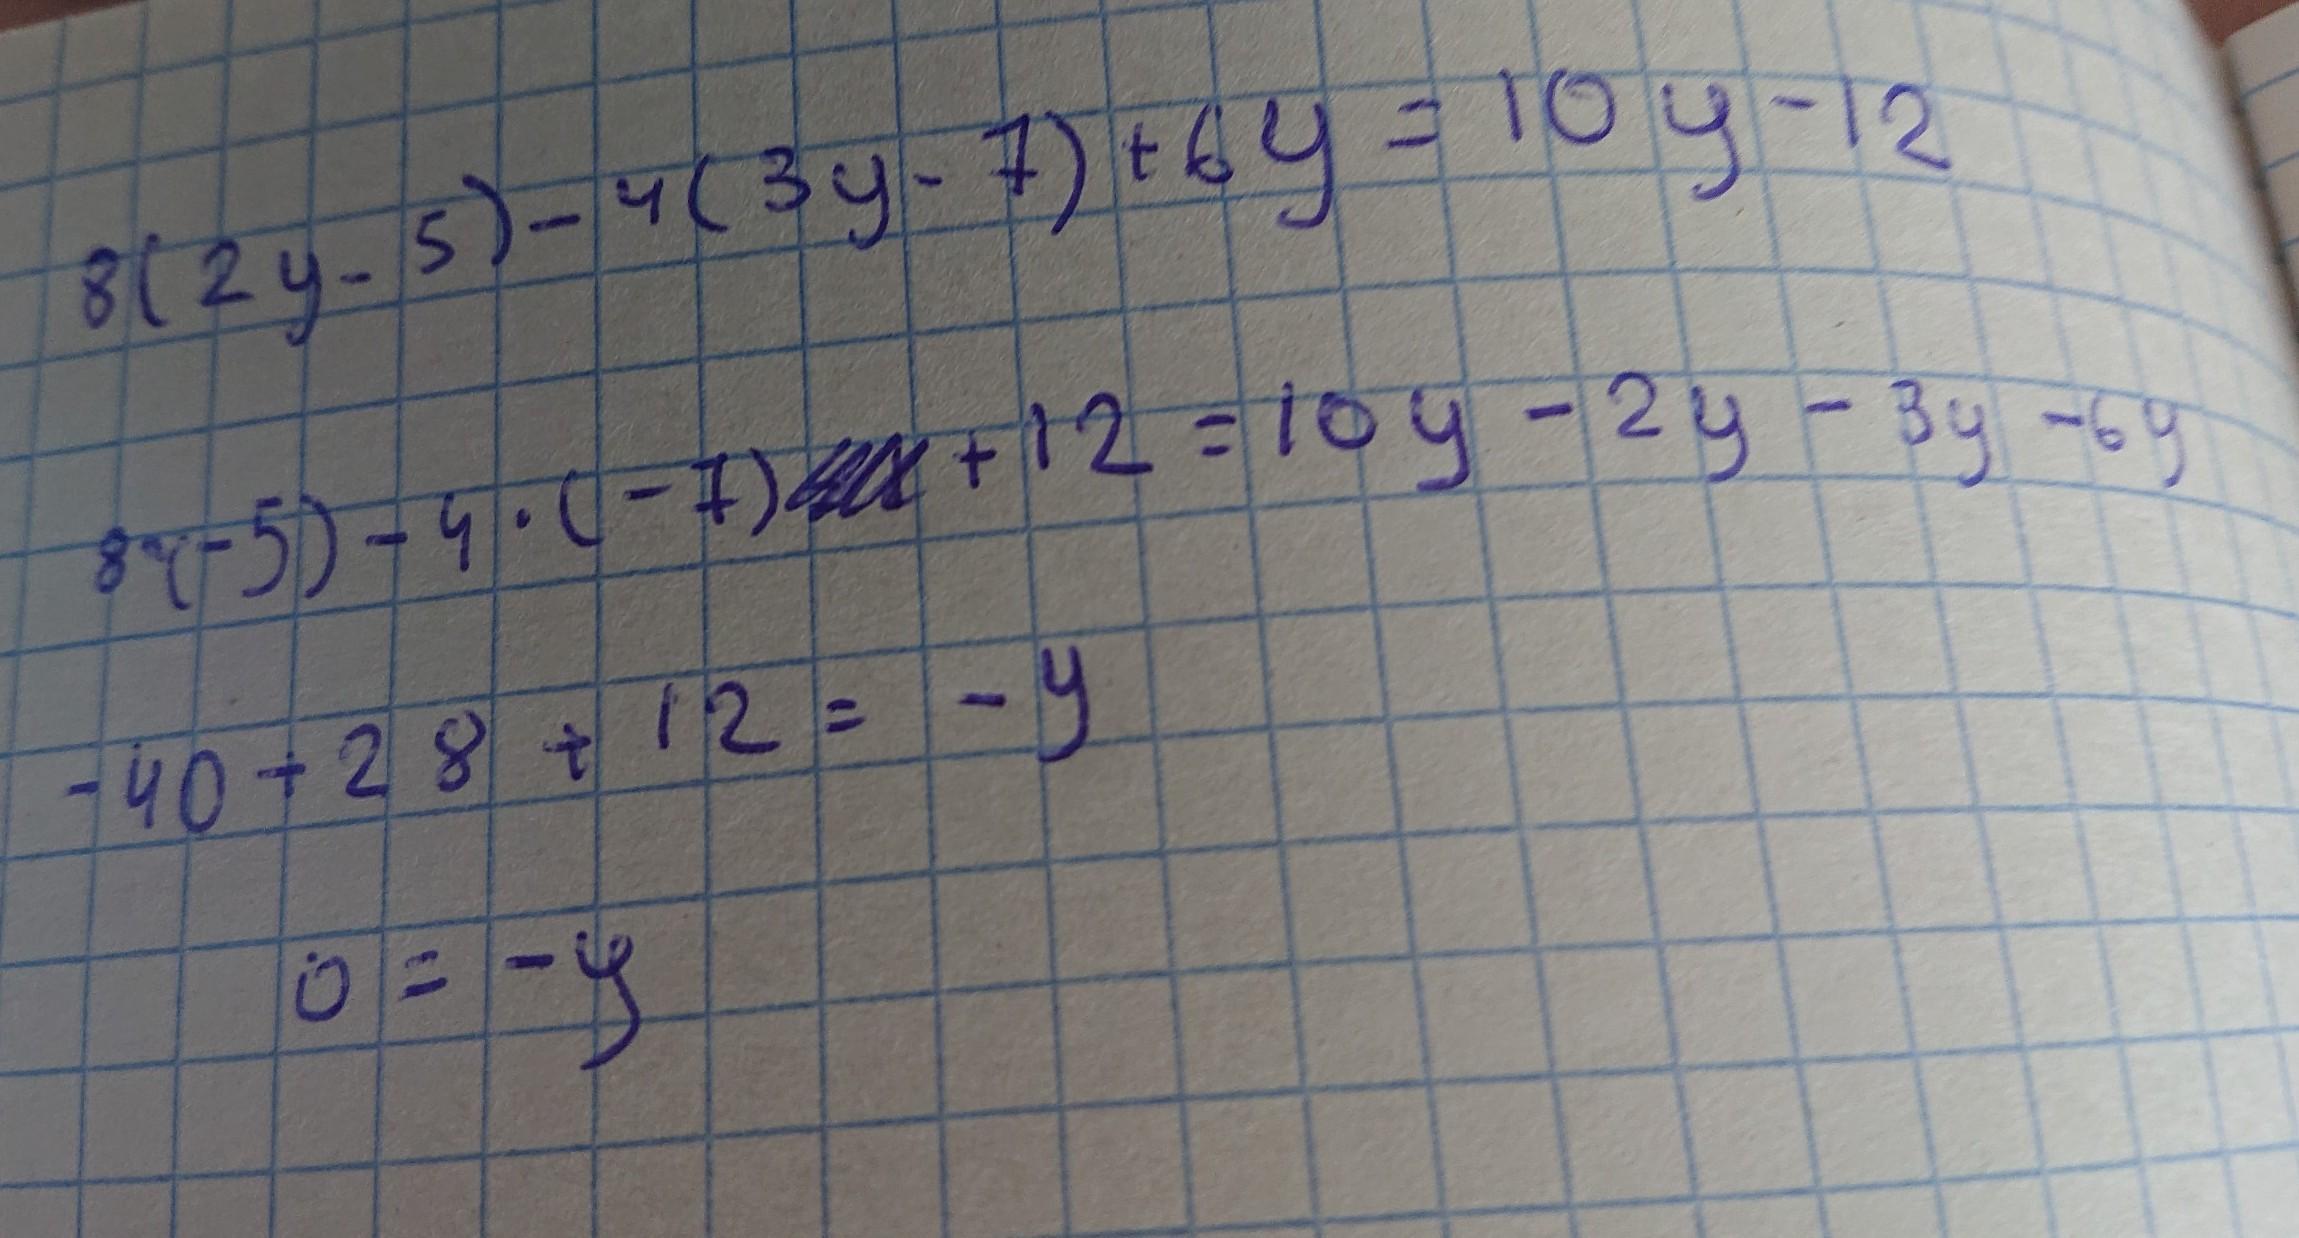 8(2y-5)-4(3y-7)+6y=10y-12
8·(-5)-4·(-7)+12=10y-2y-3y-6y
-40+28+12=-y
0=-y